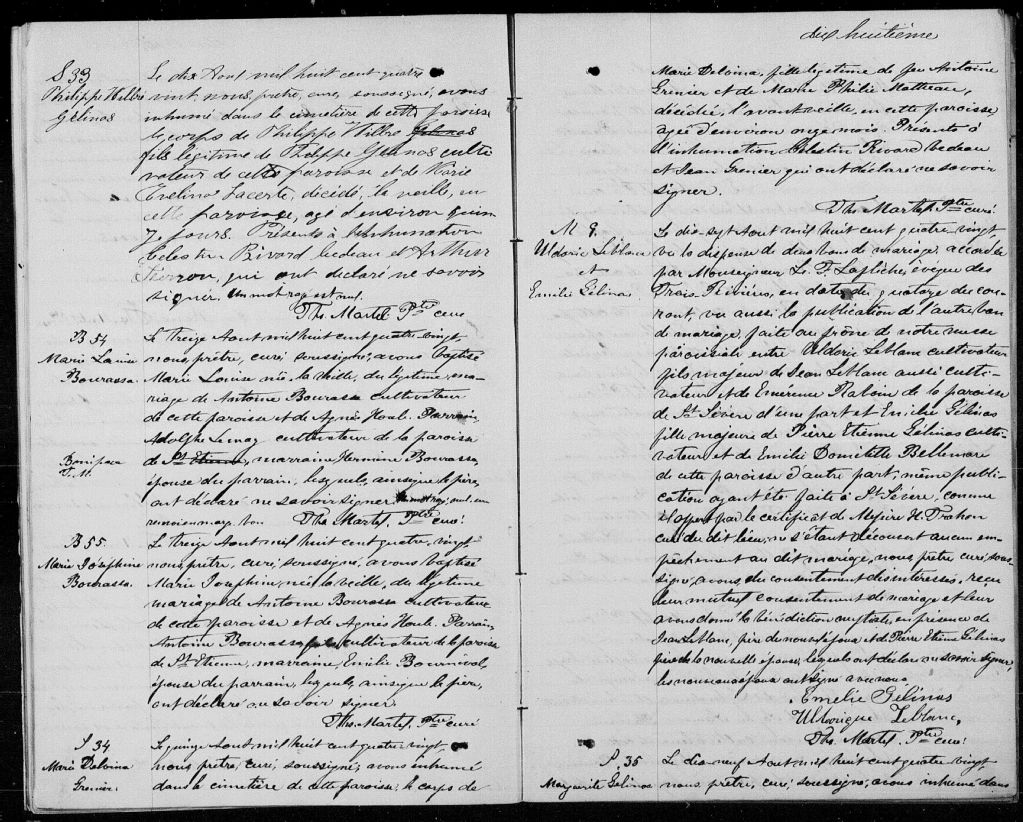 S 33
Philippe Wilbré
Gélinas
Le dix Aout mil huit cent quatre
vingt, nous, prêtre, curé, soussigné, avons
inhumé dans le cimetière de cette paroisse
le corps de Philippe Wilbré Gelinas
fils legitime de Philippe Gelinas culti
vateur de cette paroisse et de Marie
Evelina Lacerte, décédé, la veille, en
cette paroisse, agé d'environ quin
ze jours. Présents à l'inhumation
Celestin Rivard bedeau et Arthur
qui ont declaré ne savoir
signer. Un mot rayé est nul.
Ths. Martel Ptre curé
B 54
Marie Louise
Bourassa
Le treize Aout mil huit cent quatre vingt
nous, prêtre, curé soussigné, avons baptisé
Marie Louise née la veille, du légitime ma-
riage de Antoine Bourassa cultivateur
de cette paroisse et de Agnès Houle. Parrain,
Adolphe Lemay cultivateur de la paroisse
Boniface
T. M.
de St Etienne, marraine Hermine Bourassa,
épouse du parrain, lesquels, ainsi que le père,
ont déclaré ne savoir signer. Un mot rayé nul, un
renvoi en marge bon. Ths. Martel, Ptre curé
B 55.
Marie Josephine
Bourassa.
Le treize Aout mil huit cent quatre vingt
nous, prêtre, curé, soussigné, avons baptisé
Marie Josephine, née la veille, du légitime
mariage de Antoine Bourassa cultivateur
de cette paroisse et de Agnès Houle. Parrain,
Antoine Bourassa cultivateur de la paroisse
de St Etienne, marraine, Emilie Bournival,
épouse du parrain, lesquels, ainsi que le père,
ont déclaré ne savoir signer.
Ths. Martel, Ptre curé
S 34
Marie Delvina
Grenier.
Le quinze Aout mil huit cent quatre vingt,
nous, prêtre, curé, soussigné, avons inhumé
dans le cimetière de cette paroisse, le corps de
dix huitième
Marie Delvina, fille legitime de feu Antoine
Grenier et de Marie Philie Matteau,
décédée, l'avant veille, en cette paroisse,
agée d'environ onze mois. Présents à
l'inhumation Celestin Rivard bedeau
et Jean Grenier qui ont déclaré ne savoir
signer.
Ths. Martel Ptre curé
M 9.
Uldoric Leblanc
et
Emilie Gélinas.
Le dix-sept Aout mil huit cent quatre vingt
vu la dispense de deux bans de mariage, accordée
par Monseigneur Ls. F. Laflêche, évêque des
Trois-Rivières, en date du quatorze du cou-
rant, vu aussi la publication de l'autre ban
de mariage, faite au prône de notre messe
paroissiale entre Uldoric Leblanc cultivateur
fils majeur de Jean Leblanc aussi culti-
vateur et de Emérence de la paroisse
de St Sévère d'une part et Emilie Gélinas
fille majeure de Pierre Etienne Gélinas culti-
vateur et de Emilie Domitille Bellemare
de cette paroisse d'autre part, même publi-
cation ayant été faite à St Sévère, comme
il appert par le certificat de Messire H. Trahan
curé du dit lieu, ne s'étant découvert aucun em-
pêchement au dit mariage, nous prêtre curé, sous-
signé, avons, du consentement des intéressés, reçu
leur mutuel consentement de mariage et leur
avons donné la bénédiction nuptiale, en présence de
Jean Leblanc, père du nouvel époux et de Pierre Etienne Gélinas
père de la nouvelle épouse, lesquels ont déclaré ne savoir signer
les nouveaux époux ont signé avec nous.
Emelie Gélinas
Leblanc,
Ths. Martel, Ptre curé.
S. 35
Marguerite Gélinas
Le dix neuf Aout mil huit cent quatre vingt
nous, prêtre, curé, soussigné, avons inhumé dans